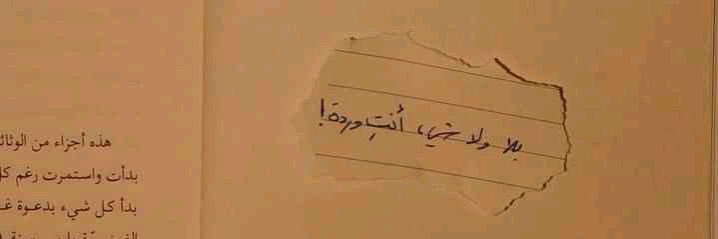 بلا ولا شيء، أنتِ وردة!
هذه أجزاء من الوثائ
بدأت واستمرت رغم كل
بدأ كل شيء بدعوة غ